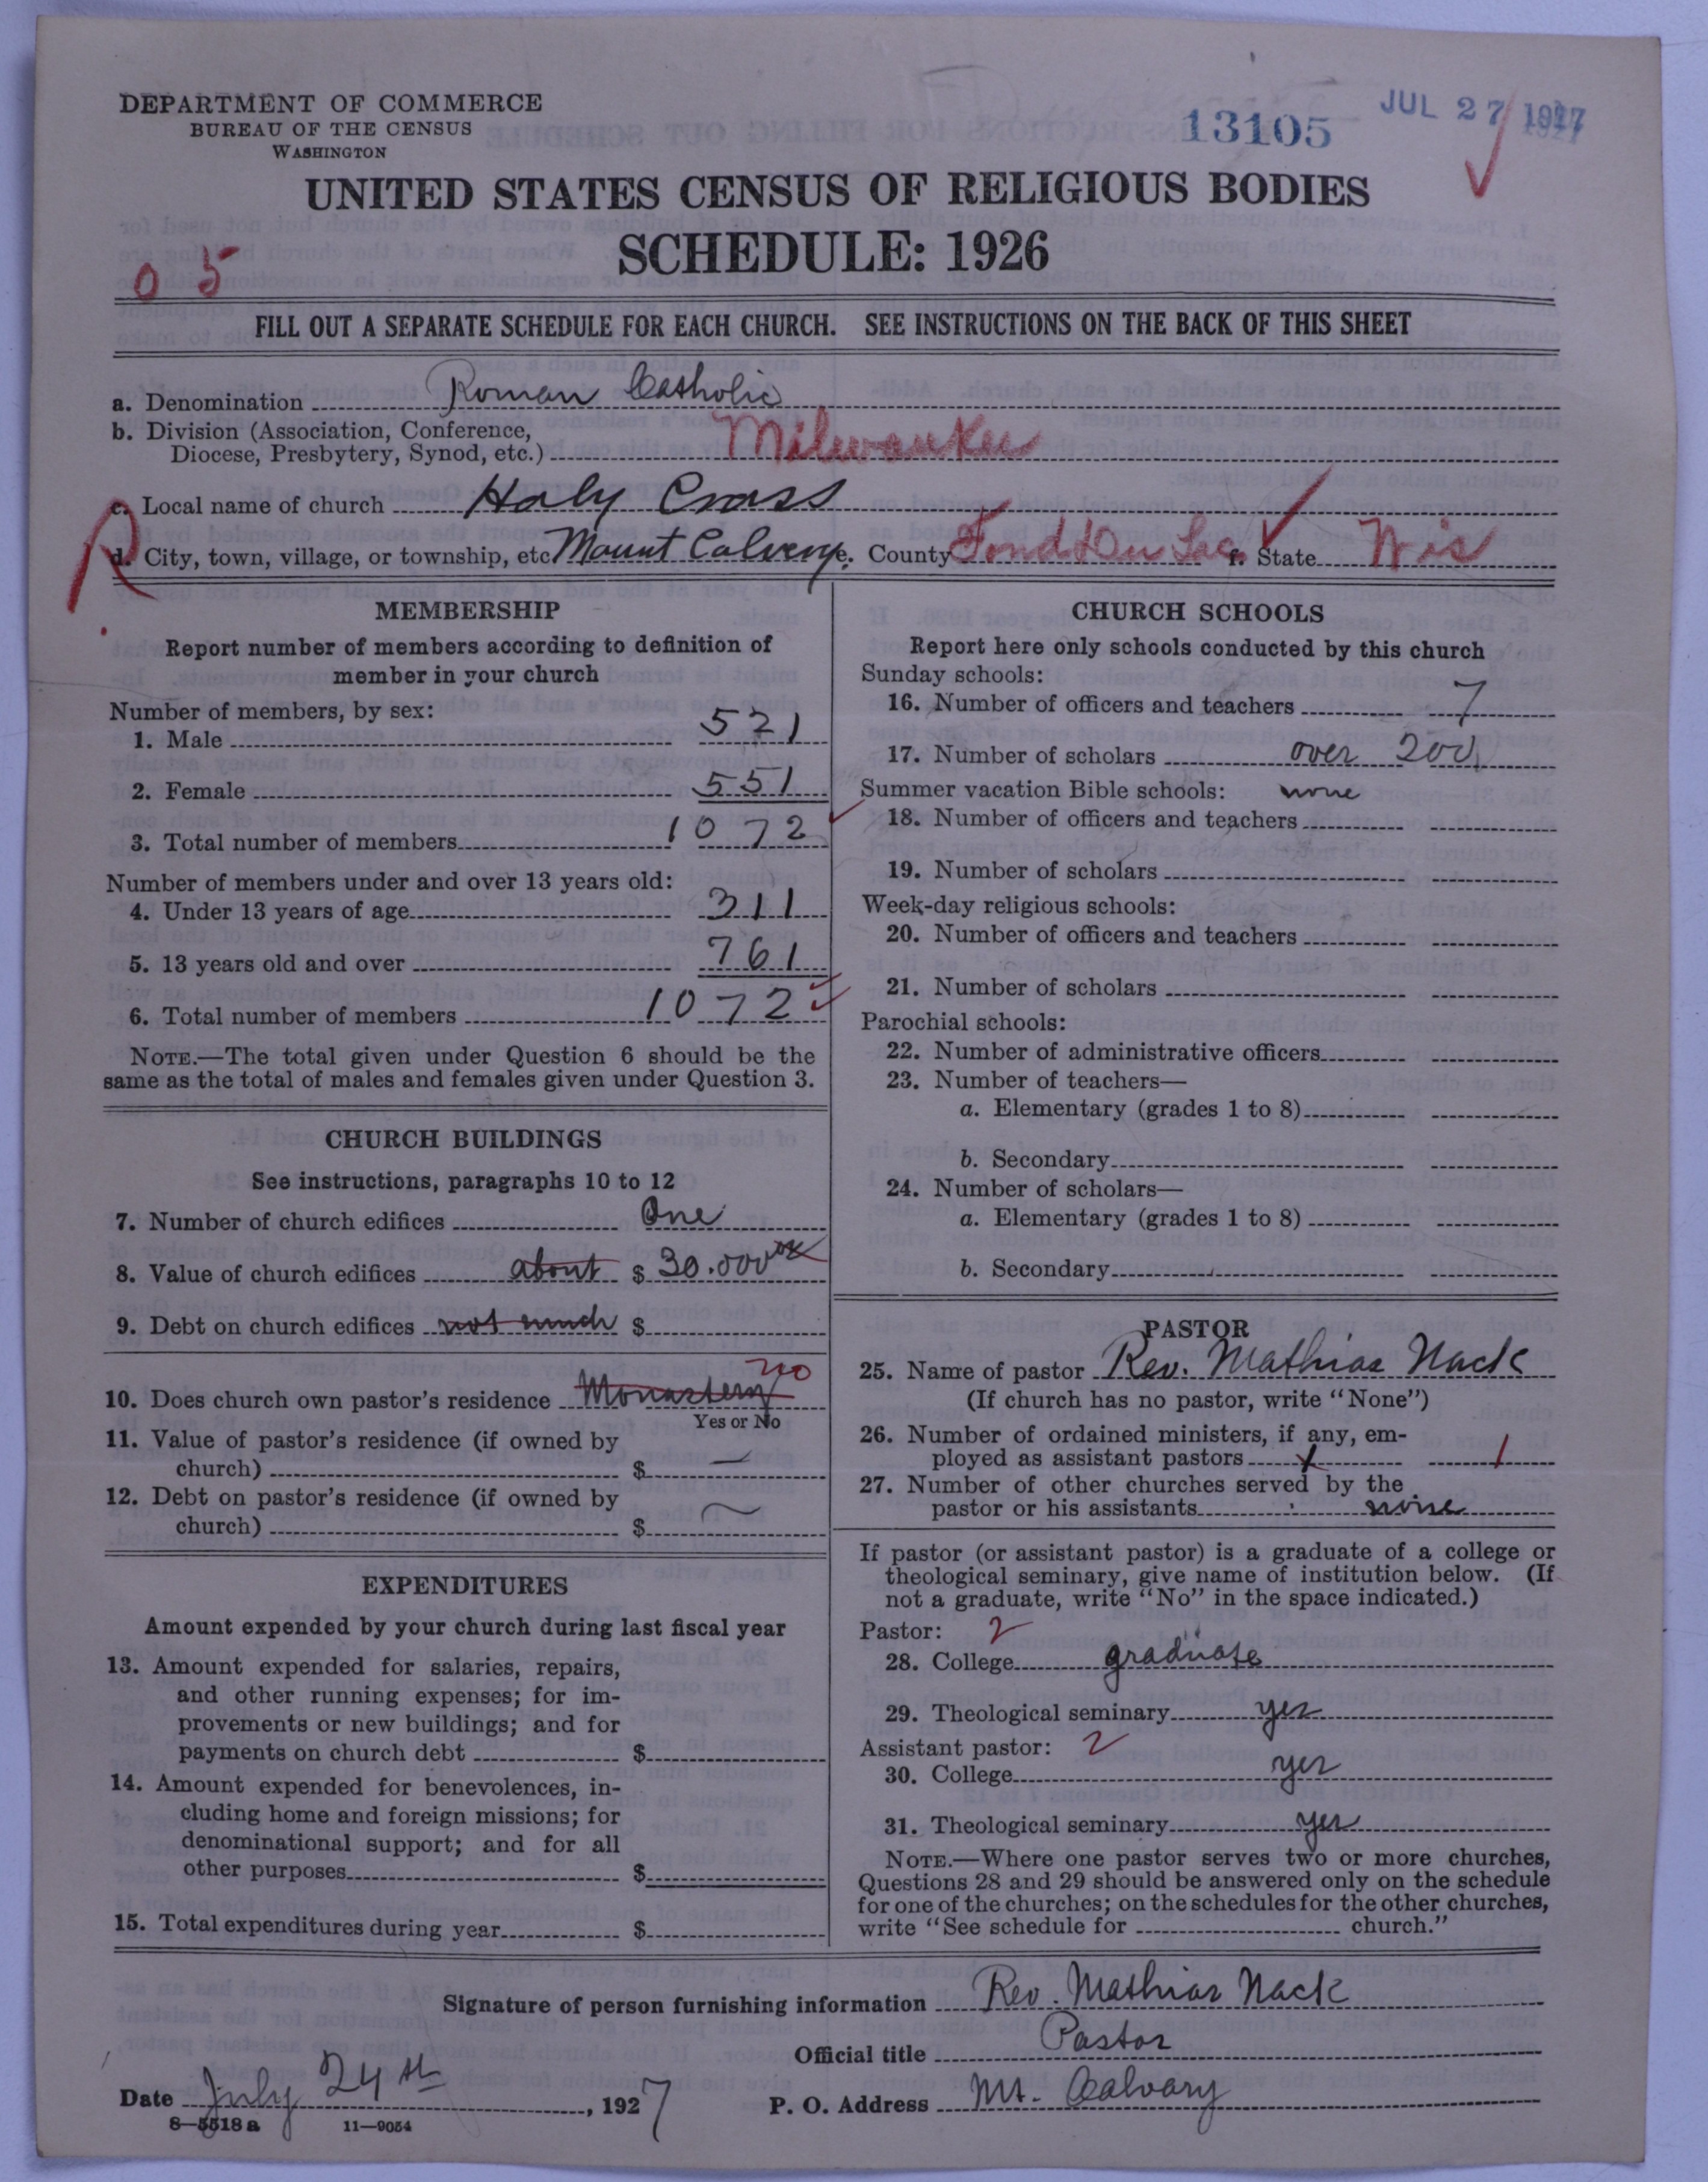 DEPARTMENT OF COMMERCE
BUREAU OF THE CENSUS
WASHINGTON
13105
JUL 27 1927
UNITED STATES CENSUS OF RELIGIOUS BODIES
SCHEDULE: 1926
05
FILL OUT A SEPARATE SCHEDULE FOR EACH CHURCH. SEE INSTRUCTIONS ON THE BACK OF THIS SHEET
a. Denomination Roman Catholic
b. Division (Association, Conference,
Diocese, Presbytery, Synod, etc.) Milwaukee
c. Local name of church Holy Cross
R
d. City, town, village, or township, etc. Mount Calvery e. County Fond Du Lac f. State Wis
MEMBERSHIP
Report number of members according to definition of
member in your church
Number of members, by sex:
1. Male 521
2. Female 551
3. Total number of members 1072
Number of members under and over 13 years old:
4. Under 13 years of age 311
5. 13 years old and over 761
6. Total number of members 1072
NOTE.—The total given under Question 6 should be the
same as the total of males and females given under Question 3.
CHURCH BUILDINGS
See instructions, paragraphs 10 to 12
7. Number of church edifices One
8. Value of church edifices about $ 30.000
9. Debt on church edifices not much $
10. Does church own pastor's residence Monastery no
Yes or No
11. Value of pastor's residence (if owned by
church) $ —
12. Debt on pastor's residence (if owned by
church) $ ~
EXPENDITURES
Amount expended by your church during last fiscal year
13. Amount expended for salaries, repairs,
and other running expenses; for im-
provements or new buildings; and for
payments on church debt $
14. Amount expended for benevolences, in-
cluding home and foreign missions; for
denominational support; and for all
other purposes $
15. Total expenditures during year $
CHURCH SCHOOLS
Report here only schools conducted by this church
Sunday schools:
16. Number of officers and teachers 7
17. Number of scholars over 200
Summer vacation Bible schools: none
18. Number of officers and teachers
19. Number of scholars
Week-day religious schools:
20. Number of officers and teachers
21. Number of scholars
Parochial schools:
22. Number of administrative officers
23. Number of teachers—
a. Elementary (grades 1 to 8)
b. Secondary
24. Number of scholars—
a. Elementary (grades 1 to 8)
b. Secondary
PASTOR
25. Name of pastor Rev. Mathias Nack
(If church has no pastor, write "None")
26. Number of ordained ministers, if any, em-
ployed as assistant pastors 1 1
27. Number of other churches served by the
pastor or his assistants none
If pastor (or assistant pastor) is a graduate of a college or
theological seminary, give name of institution below. (If
not a graduate, write "No" in the space indicated.)
Pastor: 2
28. College graduate
29. Theological seminary yes
Assistant pastor: 2
30. College yes
31. Theological seminary yes
NOTE.—Where one pastor serves two or more churches,
Questions 28 and 29 should be answered only on the schedule
for one of the churches; on the schedules for the other churches,
write "See schedule for church."
Signature of person furnishing information Rev. Mathias Nack
Official title Pastor
Date July 24th, 1927
P. O. Address Mt. Calvary
8—5518 a 11—9054